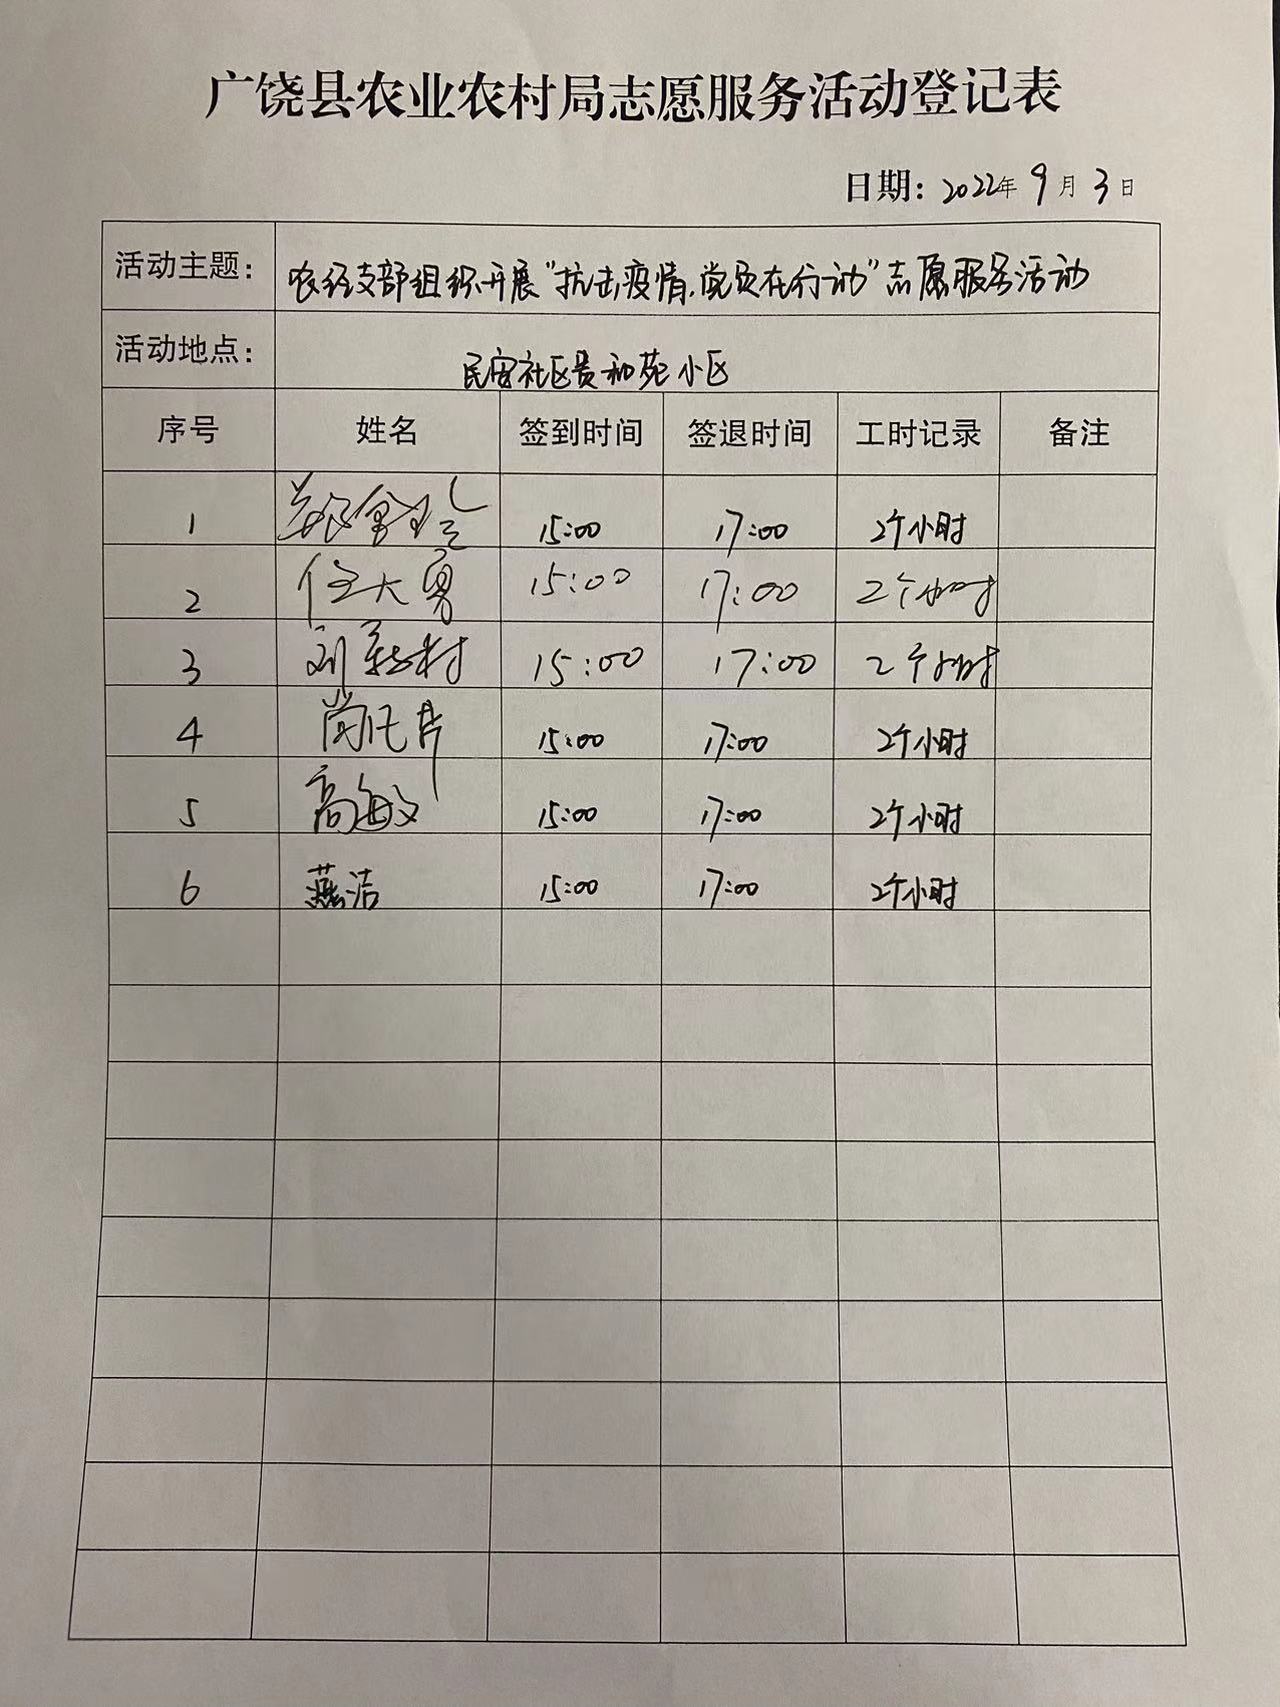 广饶县农业农村局志愿服务活动登记表
日期: 2022年 9月 3日
活动主题: 农经支部组织开展"抗击疫情,党员在行动"志愿服务活动
活动地点: 民安社区贵和苑小区
序号 姓名 签到时间 签退时间 工时记录 备注
1 15:00 17:00 2个小时
2 任大勇 15:00 17:00 2个小时
3 刘新村 15:00 17:00 2个小时
4 15:00 17:00 2个小时
5 高敏 15:00 17:00 2个小时
6 燕洁 15:00 17:00 2个小时